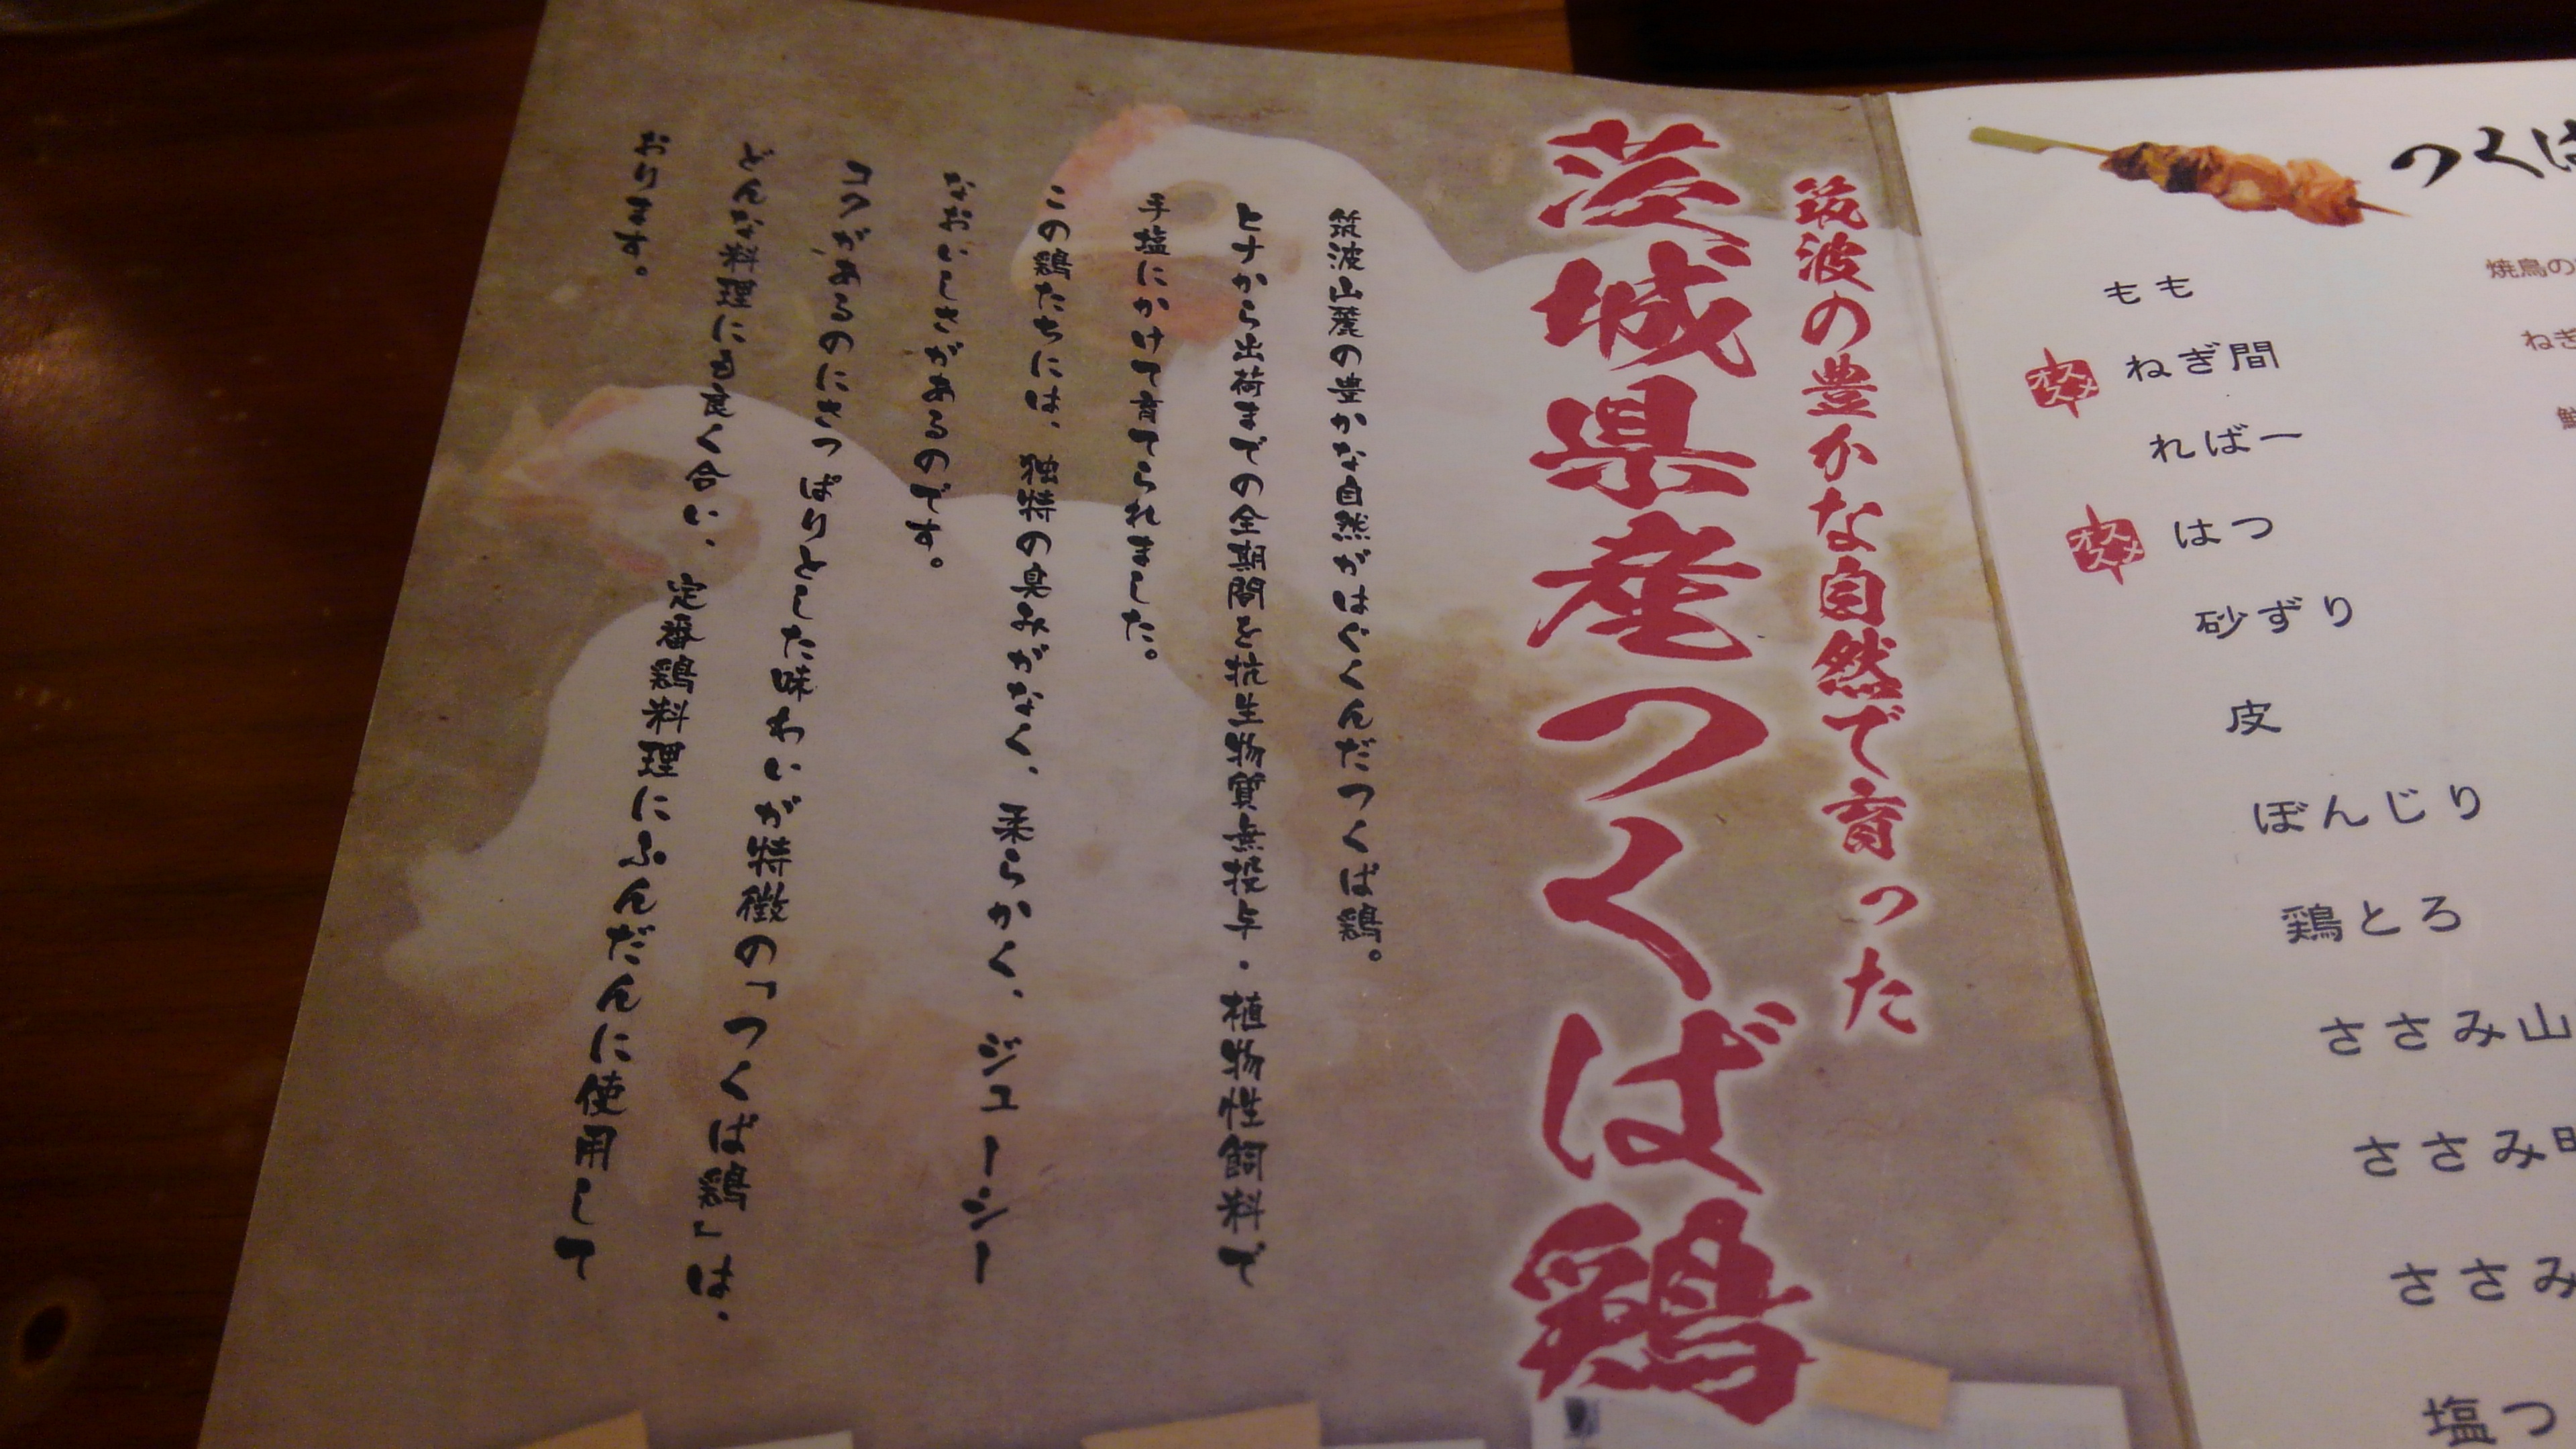 筑波の豊かな自然で育った
茨城県産つくば鶏
筑波山麓の豊かな自然がはぐくんだつくば鶏。
ヒナから出荷までの全期間を抗生物質無投与・植物性飼料で
手塩にかけて育てられました。
この鶏たちには、独特の臭みがなく、柔らかく、ジューシー
なおいしさがあるのです。
コクがあるのにさっぱりとした味わいが特徴の「つくば鶏」は、
どんな料理にも良く合い、定番鶏料理にふんだんに使用して
おります。
つくば
焼鳥の
もも
ねぎ
オススメ
ねぎ間
ればー
オススメ
はつ
砂ずり
皮
ぼんじり
鶏とろ
ささみ山
ささみ
ささみ
塩つ